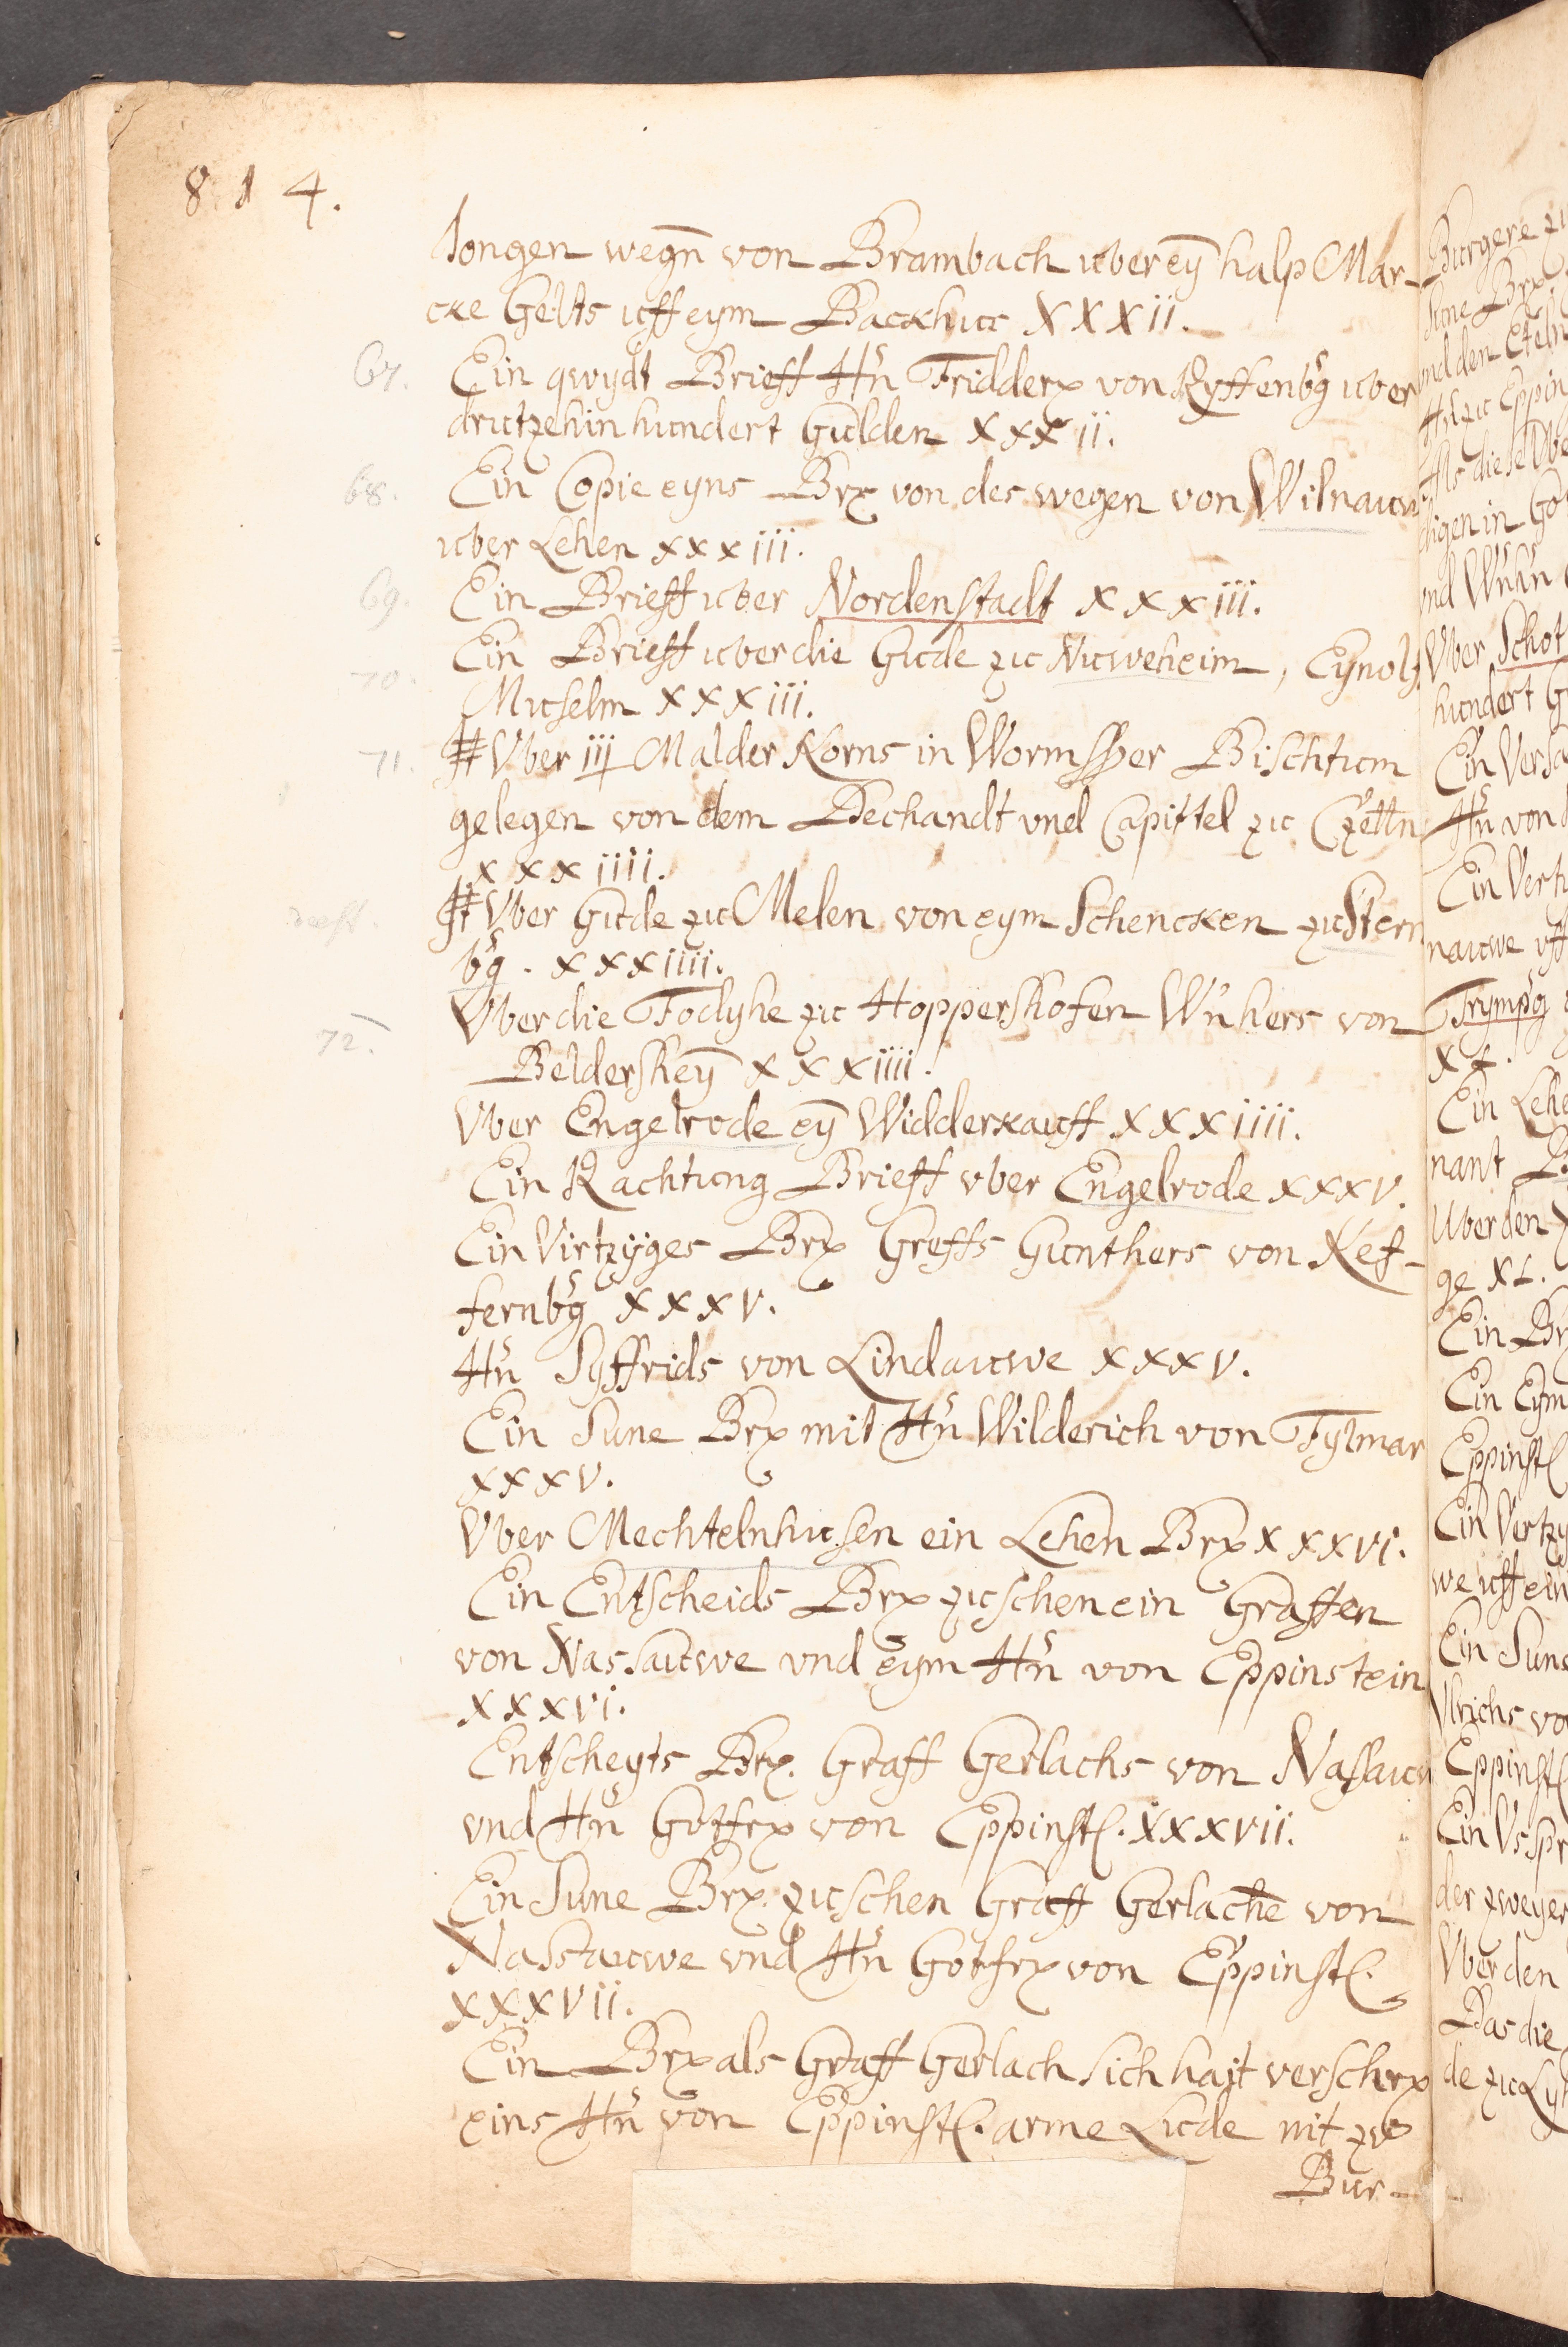 814.
Jongen wegn̄ von Brambach uber eȳ halp Mar-
cke Gelts uff eym Backhus XXXii.
67. Ein qwydt Brieff Hn Fridderx von Ryffenbg uber
drutzehin hundert Gulden XXXii.
68. Ein Copie eyns Brx von des wegen von Wilnauw
uber Lehen xxxiii.
69. Ein Brieff uber Nordenstadt XXXiii.
70. Ein Brieff uber die Gude zu Nuweheim, Eynolf
Muselm XXXiii.
71. # Vber iij Malder Korns in Wormsser Bischtum
gelegen von dem Dechandt vnd Capittel zu Czelln
xxxiiii.
deest. # Vber Gude zu Melen von eym Schencken zu Stern
bg. xxxiiii.
72. Vber die Fodyhe zu Hoppershofen Wnhers von
Beldersheȳ XXXiiii.
Vber Engelrode eȳ Widderkauff XXXiiii.
Ein Rachtung Brieff vber Engelrode xxxv.
Ein Virtzyges Brx Greffs Gunthers von Kef-
fernbg XXXV.
Hn Syffrids von Lindauwe xxxv.
Ein Sune Brx mit Hn Wilderich von Fylmar
xxxv.
Vber Mechtelnhusen ein Lehen Brx xxxvi.
Ein Entscheids Brx zuschen ein Graffen
von Nassauwe vnd eym Hn von Eppinstein
xxxvi.
Entscheyts Brx. Graff Gerlachs von Nassauw
vnd Hn Gotfrx von Eppinst. XXXVII.
Ein Sune Brx. zuschen Graff Gerlache von
Nasstauwe vnd Hn Gotfrx von Eppinst.
xxxvii.
Ein Brx als Graff Gerlach sich hait verschrx
eins Hn von Eppinst. arme Lude nit zu
Bur-
Burgere zu
Sune Brx
vnd den
zu Eppin
Als diese
digen in
vnd
Vber Schot
hundert
Ein
Hn von
Ein
nauwe vff
Trympg
XL.
Ein Lehe
nant
Uber den
ge XL.
Ein Br
Ein Eym
Eppinst
Ein Vertzy
we uff ein
Ein Suns
Vlrichs vo
Eppinst
Ein Vsspr
der zweyer
Vber den
Das die
de zu